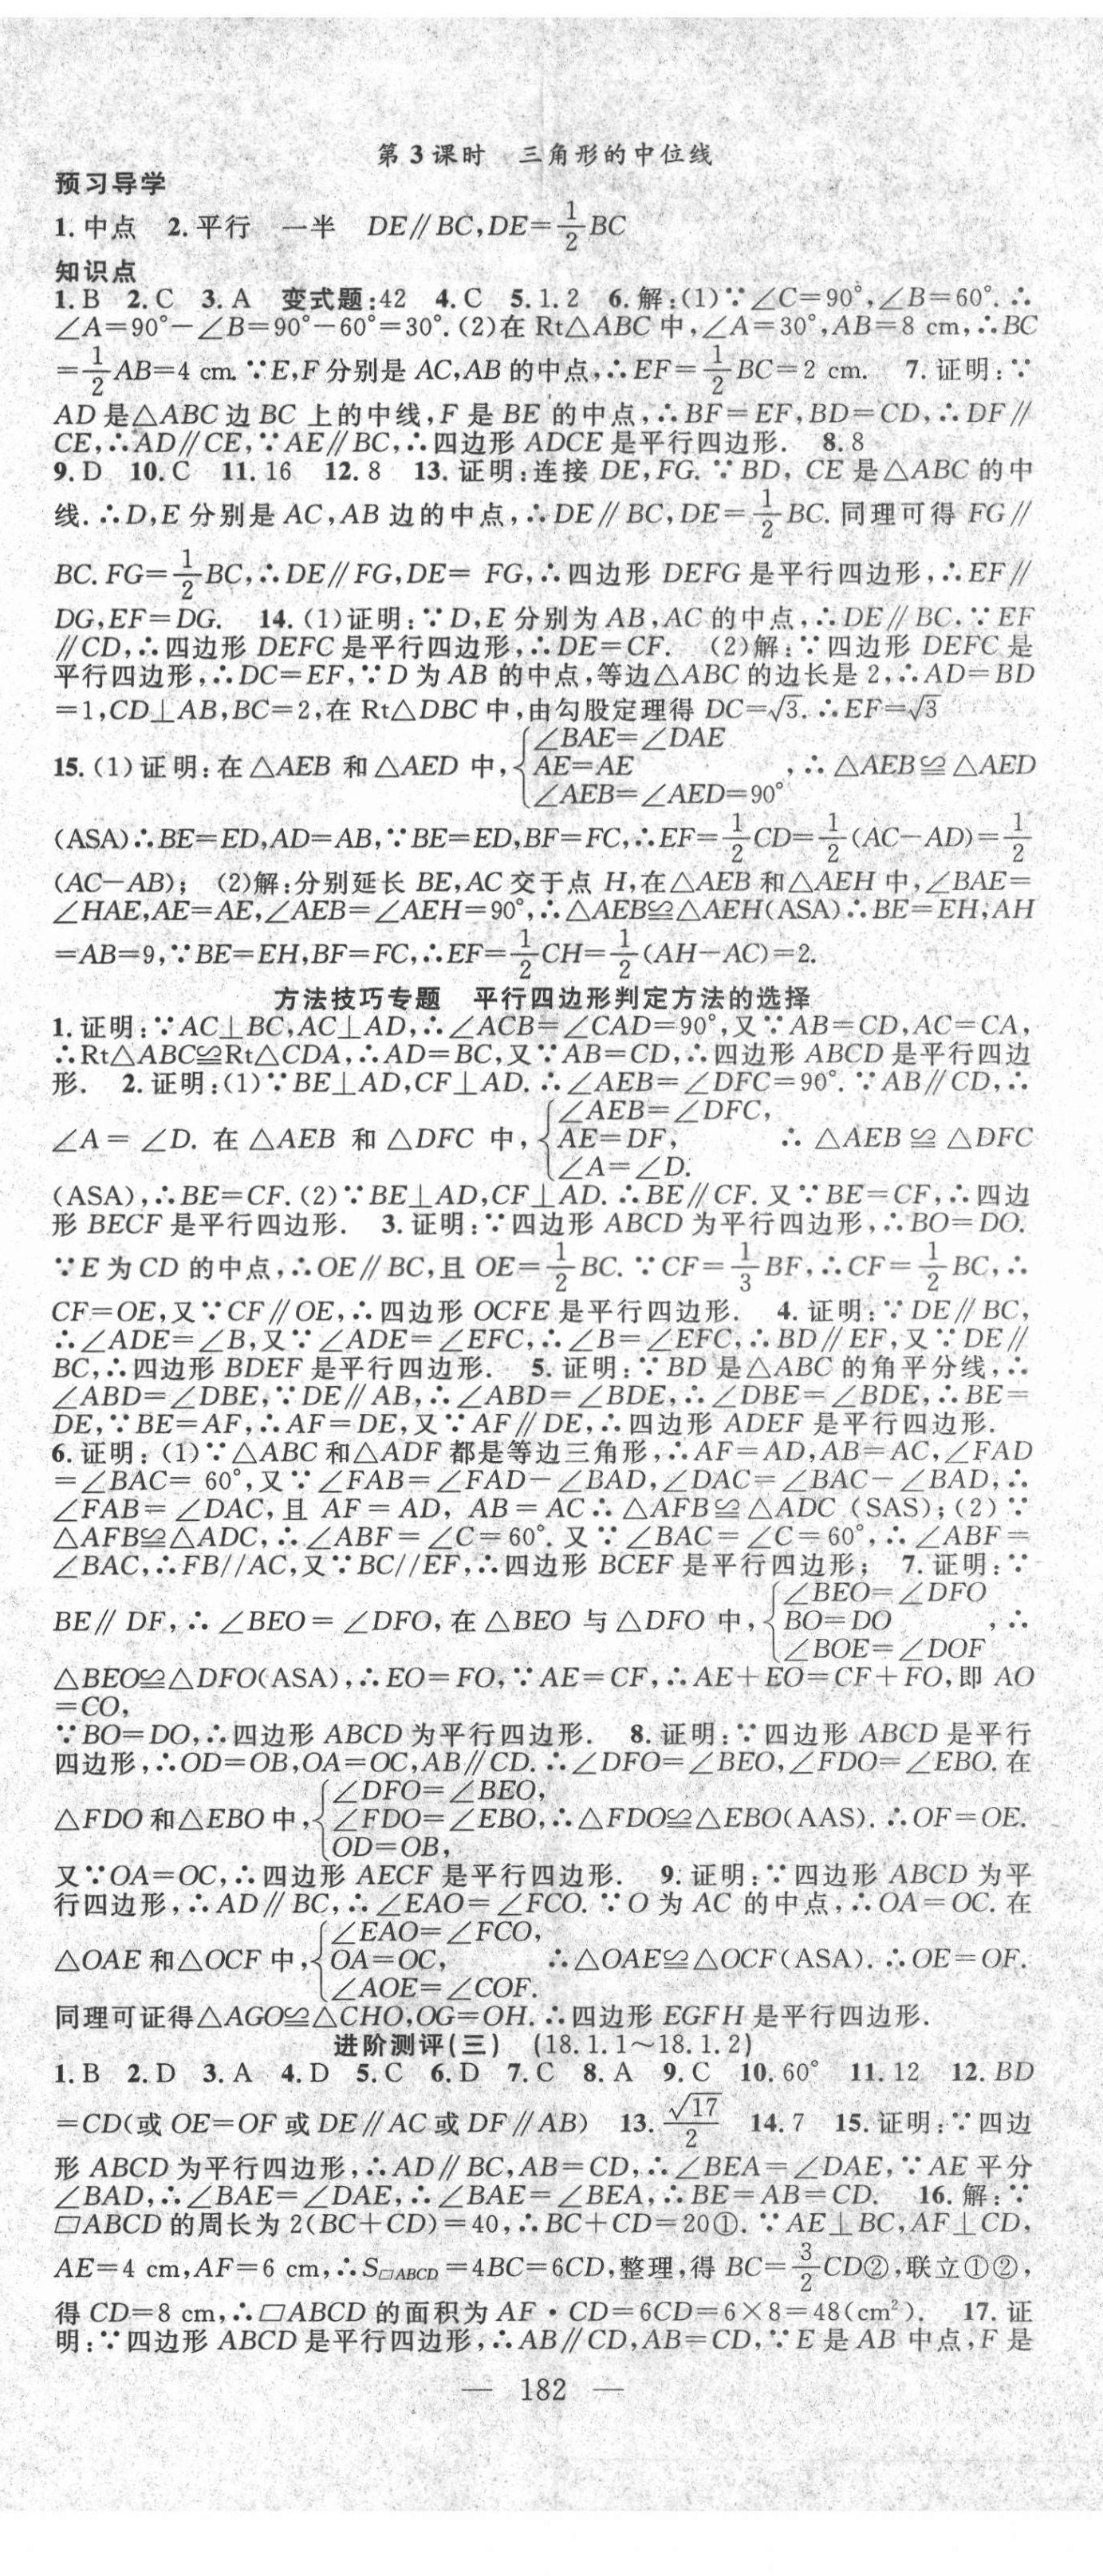 第3课时　三角形的中位线
预习导学
1.中点　2.平行　一半　DE∥BC,DE=1/2BC
知识点
1.B　2.C　3.A　变式题:42　4.C　5.1.2　6.解:(1)∵∠C=90°,∠B=60°.∴
∠A=90°-∠B=90°-60°=30°.(2)在Rt△ABC中,∠A=30°,AB=8 cm,∴BC
=1/2AB=4 cm.∵E,F分别是AC,AB的中点,∴EF=1/2BC=2 cm.　7.证明:∵
AD是△ABC边BC上的中线,F是BE的中点,∴BF=EF,BD=CD,∴DF∥
CE,∴AD∥CE,∵AE∥BC,∴四边形ADCE是平行四边形.　8.8
9.D　10.C　11.16　12.8　13.证明:连接DE,FG.∵BD, CE是△ABC的中
线.∴D,E分别是AC,AB边的中点,∴DE∥BC,DE=1/2BC.同理可得FG∥
BC.FG=1/2BC,∴DE∥FG,DE= FG,∴四边形DEFG是平行四边形,∴EF∥
DG,EF=DG.　14.(1)证明:∵D,E分别为AB,AC的中点,∴DE∥BC.∵EF
∥CD,∴四边形DEFC是平行四边形,∴DE=CF.　(2)解:∵四边形DEFC是
平行四边形,∴DC=EF,∵D为AB的中点,等边△ABC的边长是2,∴AD=BD
=1,CD⊥AB,BC=2,在Rt△DBC中,由勾股定理得DC=√3.∴EF=√3
15.(1)证明:在△AEB和△AED中,{∠BAE=∠DAE
AE=AE
∠AEB=∠AED=90°,∴△AEB≌△AED
(ASA)∴BE=ED,AD=AB,∵BE=ED,BF=FC,∴EF=1/2CD=1/2(AC-AD)=1/2
(AC-AB);　(2)解:分别延长BE,AC交于点H,在△AEB和△AEH中,∠BAE=
∠HAE,AE=AE,∠AEB=∠AEH=90°,∴△AEB≌△AEH(ASA)∴BE=EH,AH
=AB=9,∵BE=EH,BF=FC,∴EF=1/2CH=1/2(AH-AC)=2.
方法技巧专题　平行四边形判定方法的选择
1.证明:∵AC⊥BC,AC⊥AD,∴∠ACB=∠CAD=90°,又∵AB=CD,AC=CA,
∴Rt△ABC≌Rt△CDA,∴AD=BC,又∵AB=CD,∴四边形ABCD是平行四边
形.　2.证明:(1)∵BE⊥AD,CF⊥AD.∴∠AEB=∠DFC=90°.∵AB∥CD,∴
∠A=∠D.在△AEB和△DFC中,{∠AEB=∠DFC,
AE=DF,
∠A=∠D.　∴△AEB≌△DFC
(ASA),∴BE=CF.(2)∵BE⊥AD,CF⊥AD.∴BE∥CF.又∵BE=CF,∴四边
形BECF是平行四边形.　3.证明:∵四边形ABCD为平行四边形,∴BO=DO.
∵E为CD的中点,∴OE∥BC,且OE=1/2BC.∵CF=1/3BF,∴CF=1/2BC,∴
CF=OE,又∵CF∥OE,∴四边形OCFE是平行四边形.　4.证明:∵DE∥BC,
∴∠ADE=∠B,又∵∠ADE=∠EFC,∴∠B=∠EFC,∴BD∥EF,又∵DE∥
BC,∴四边形BDEF是平行四边形.　5.证明:∵BD是△ABC的角平分线,∴
∠ABD=∠DBE,∵DE∥AB,∴∠ABD=∠BDE,∴∠DBE=∠BDE,∴BE=
DE,∵BE=AF,∴AF=DE,又∵AF∥DE,∴四边形ADEF是平行四边形.
6.证明:(1)∵△ABC和△ADF都是等边三角形,∴AF=AD,AB=AC,∠FAD
=∠BAC= 60°,又∵∠FAB=∠FAD-∠BAD,∠DAC=∠BAC-∠BAD,∴
∠FAB=∠DAC,且AF=AD, AB=AC∴△AFB≌△ADC (SAS);(2)∵
△AFB≌△ADC,∴∠ABF=∠C=60°.又∵∠BAC=∠C=60°,∴∠ABF=
∠BAC,∴FB//AC,又∵BC//EF,∴四边形BCEF是平行四边形;　7.证明:∵
BE∥DF,∴∠BEO=∠DFO,在△BEO与△DFO中,{∠BEO=∠DFO
BO=DO
∠BOE=∠DOF,∴
△BEO≌△DFO(ASA),∴EO=FO,∵AE=CF,∴AE+EO=CF+FO,即AO
=CO,
∵BO=DO,∴四边形ABCD为平行四边形.　8.证明:∵四边形ABCD是平行
四边形,∴OD=OB,OA=OC,AB∥CD.∴∠DFO=∠BEO,∠FDO=∠EBO.在
△FDO和△EBO中,{∠DFO=∠BEO,
∠FDO=∠EBO,
OD=OB,∴△FDO≌△EBO(AAS).∴OF=OE.
又∵OA=OC,∴四边形AECF是平行四边形.　9.证明:∵四边形ABCD为平
行四边形,∴AD∥BC,∴∠EAO=∠FCO.∵O为AC的中点,∴OA=OC.在
△OAE和△OCF中,{∠EAO=∠FCO,
OA=OC,
∠AOE=∠COF.　∴△OAE≌△OCF(ASA).∴OE=OF.
同理可证得△AGO≌△CHO,OG=OH.∴四边形EGFH是平行四边形.
进阶测评(三)　(18.1.1~18.1.2)
1.B　2.D　3.A　4.D　5.C　6.D　7.C　8.A　9.C　10.60°　11.12　12.BD
=CD(或OE=OF或DE∥AC或DF∥AB)　13.√17/2　14.7　15.证明:∵四边
形ABCD为平行四边形,∴AD∥BC,AB=CD,∴∠BEA=∠DAE,∵AE平分
∠BAD,∴∠BAE=∠DAE,∴∠BAE=∠BEA,∴BE=AB=CD.　16.解:∵
▱ABCD的周长为2(BC+CD)=40,∴BC+CD=20①.∵AE⊥BC,AF⊥CD,
AE=4 cm,AF=6 cm,∴S▱ABCD=4BC=6CD,整理,得BC=3/2CD②,联立①②,
得CD=8 cm,∴▱ABCD的面积为AF·CD=6CD=6×8=48(cm²).　17.证
明:∵四边形ABCD是平行四边形,∴AB∥CD,AB=CD,∵E是AB中点,F是
— 182 —